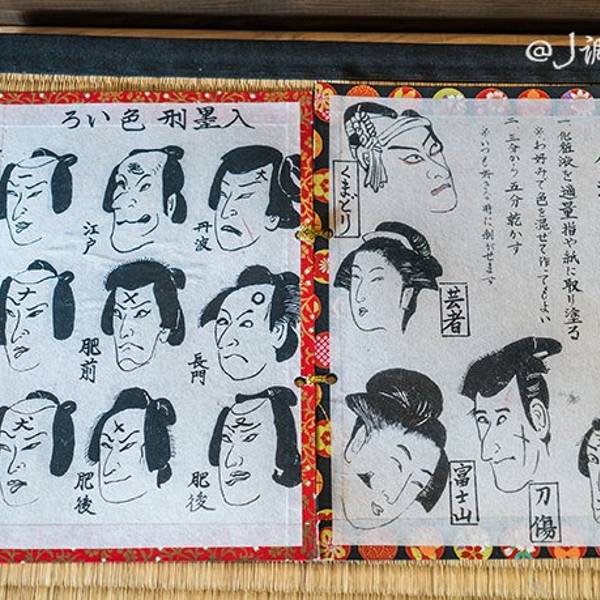 @J調
入墨刑色いろ
丹波
江戸
長門
肥前
肥後
肥後
一 化粧液を適量指や紙に取り塗る
※お好みで色を混ぜて作ってもよい
二 三分から五分乾かす
くまどり
芸者
刀傷
富士山